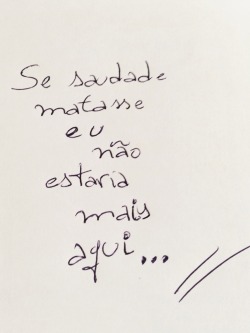 Se saudade
matasse
eu
não
estaria
mais
aqui...